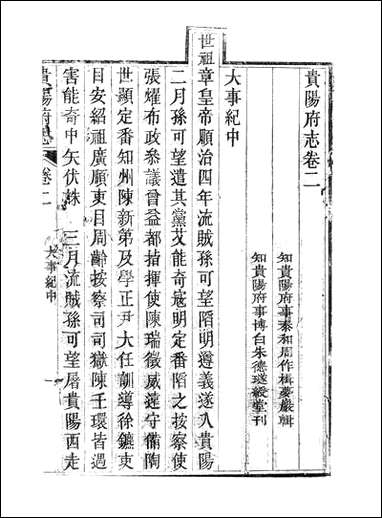 貴陽府志卷二
知貴陽府事泰和周作楫夢巖輯
知貴陽府事博白朱德璲綬堂刊
大事紀中
世祖章皇帝順治四年流賊孫可望陷明遵義遂入貴陽
二月孫可望遣其黨艾能奇寇明定番陷之按察使
張耀布政參議曾益都指揮使陳瑞徵威遠守備陶
世顯定番知州陳新第及學正尹大任訓導徐鑣吏
目安紹祖廣順吏目周齡按察司司獄陳王環皆遇
害能奇中矢伏誅　三月流賊孫可望屠貴陽西走
貴陽府志
卷二
大事紀中
一